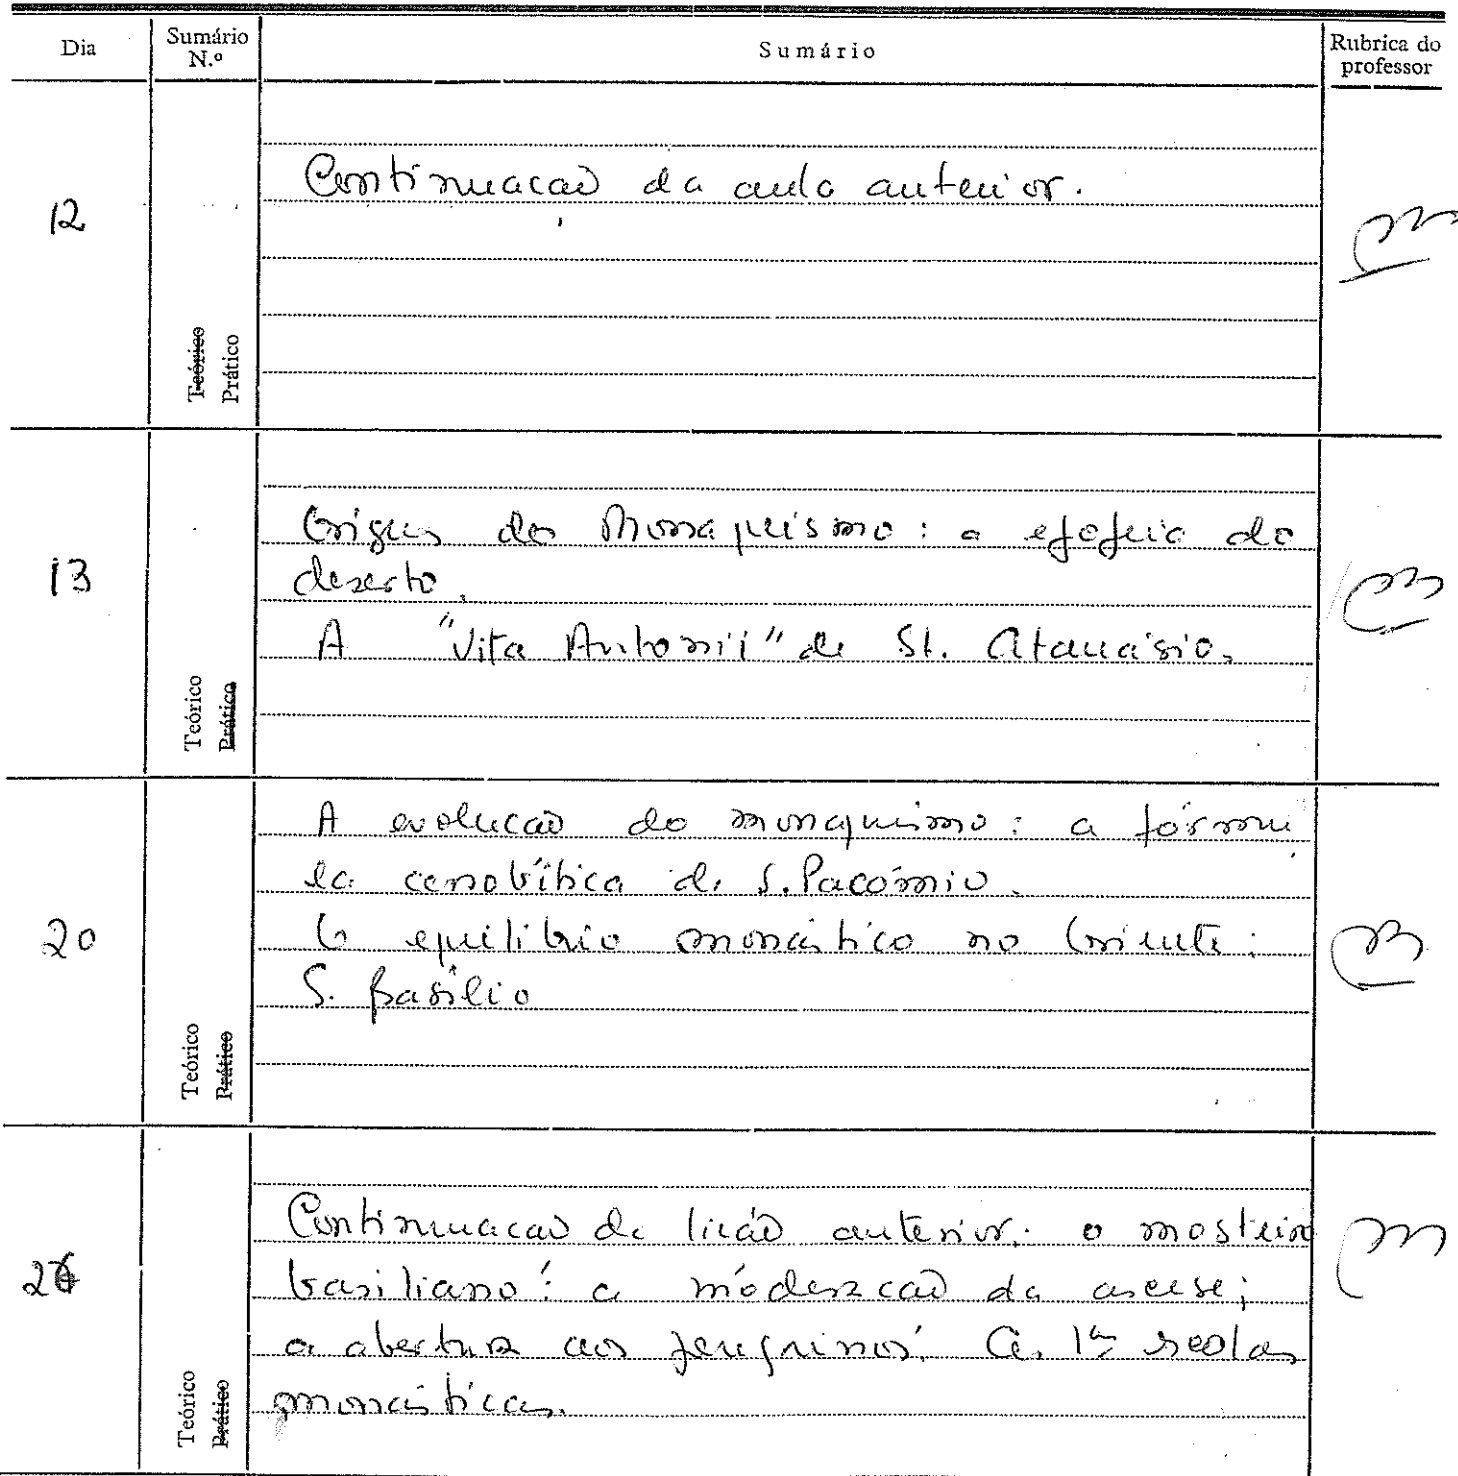 Dia
Sumário N.º
Sumário
Rubrica do professor
12
Teórico
Prático
Continuacaõ da aula anterior.
13
Teórico
Prático
Origens do Monaquismo: a epopeia do
deserto.
A "Vita Antonii" de St. Atanásio.
20
Teórico
Prático
A evolucaõ do monaquismo: a fórmu
la cenobítica de S. Pacómio.
O equilíbrio monástico no Oriente:
S. Basílio
Teórico
Prático
Continuacaõ da licaõ anterior: o mosteiro
basiliano: a moderacaõ da ascese;
a abertura aos peregrinos. As 1as regras
monásticas.